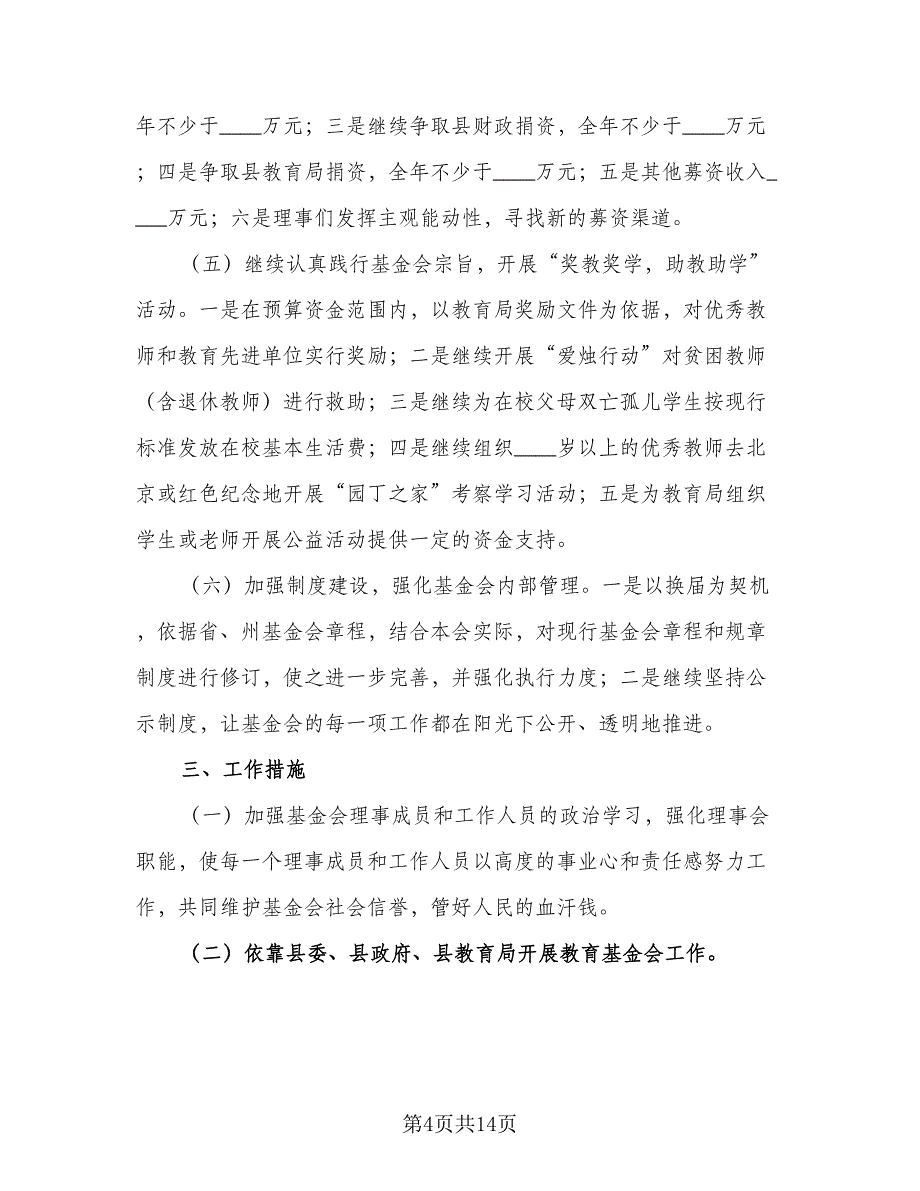 年不少于____万元；三是继续争取县财政捐资，全年不少于____万元
；四是争取县教育局捐资，全年不少于____万元；五是其他募资收入_
___万元；六是理事们发挥主观能动性，寻找新的募资渠道。
（五）继续认真践行基金会宗旨，开展“奖教奖学，助教助学”
活动。一是在预算资金范围内，以教育局奖励文件为依据，对优秀教
师和教育先进单位实行奖励；二是继续开展“爱烛行动”对贫困教师
（含退休教师）进行救助；三是继续为在校父母双亡孤儿学生按现行
标准发放在校基本生活费；四是继续组织____岁以上的优秀教师去北
京或红色纪念地开展“园丁之家”考察学习活动；五是为教育局组织
学生或老师开展公益活动提供一定的资金支持。
（六）加强制度建设，强化基金会内部管理。一是以换届为契机
，依据省、州基金会章程，结合本会实际，对现行基金会章程和规章
制度进行修订，使之进一步完善，并强化执行力度；二是继续坚持公
示制度，让基金会的每一项工作都在阳光下公开、透明地推进。
三、工作措施
（一）加强基金会理事成员和工作人员的政治学习，强化理事会
职能，使每一个理事成员和工作人员以高度的事业心和责任感努力工
作，共同维护基金会社会信誉，管好人民的血汗钱。
（二）依靠县委、县政府、县教育局开展教育基金会工作。
第4页共14页